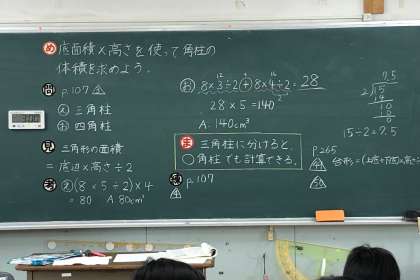 め 底面積×高さを使って角柱の
体積を求めよう。
問 p.107 ④
え 三角柱
お 四角柱
見 三角形の面積
＝底辺×高さ÷2
考 え (8×5÷2)×4
＝80 A.80cm³
3:00
お 8×3÷2+8×4÷2=28
12
16
28×5=140
A.140cm³
ま 三角柱に分けると、
○角柱でも計算できる。
p.107
7.5
2)15
14
10
10
0
15÷2=7.5
p.265
台形=(上底+下底)×高さ÷2